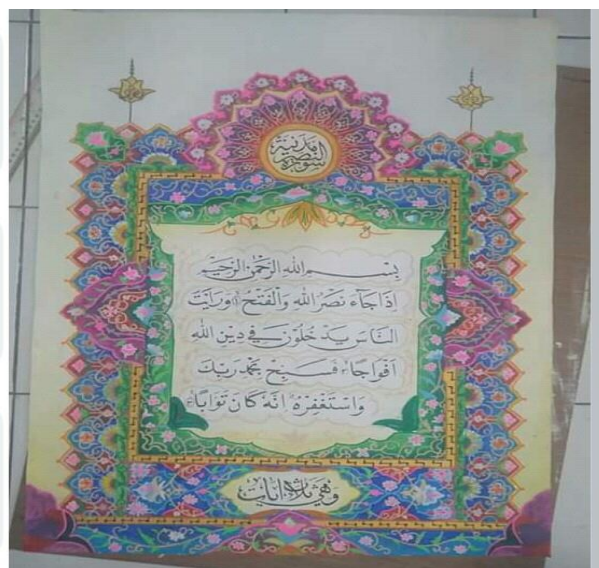 سورة النصر مدنية
بسم الله الرحمن الرحيم
اذا جاء نصر الله والفتح ۝ ورايت
الناس يدخلون في دين الله
افواجا ۝ فسبح بحمد ربك
واستغفره انه كان توابا ۝
وهي ثلاث ايات